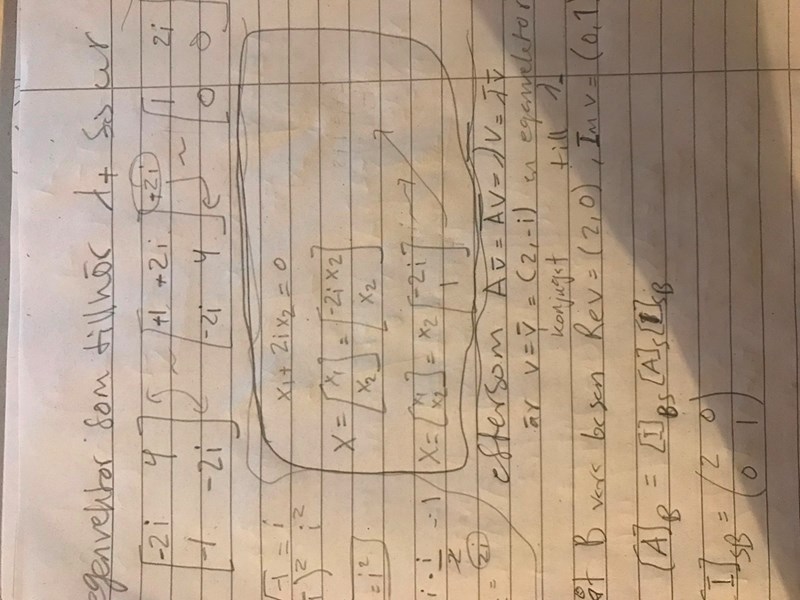 egenvektor som tillhör λ+ ss ur
[-2i 4
-1 -2i] ~ [+1 +2i
-2i 4] +2i ~ [1 2i
0 0]
√-1 = i
i²
= i²
x₁ + 2ix₂ = 0
X = [x₁
x₂] = [-2i x₂
x₂]
X = [x₁
x₂] = x₂ [-2i
1]
2i
eftersom Av̄ = Āv̄ = λ̄v̄
är v = v̄ = (2,-i) en egenvektor
konjugat till λ
åt B vara basen Re v = (2,0), Im v = (0,1
[A]B = [I]BS [A]S [I]SB
I]SB = (2 0
0 1)